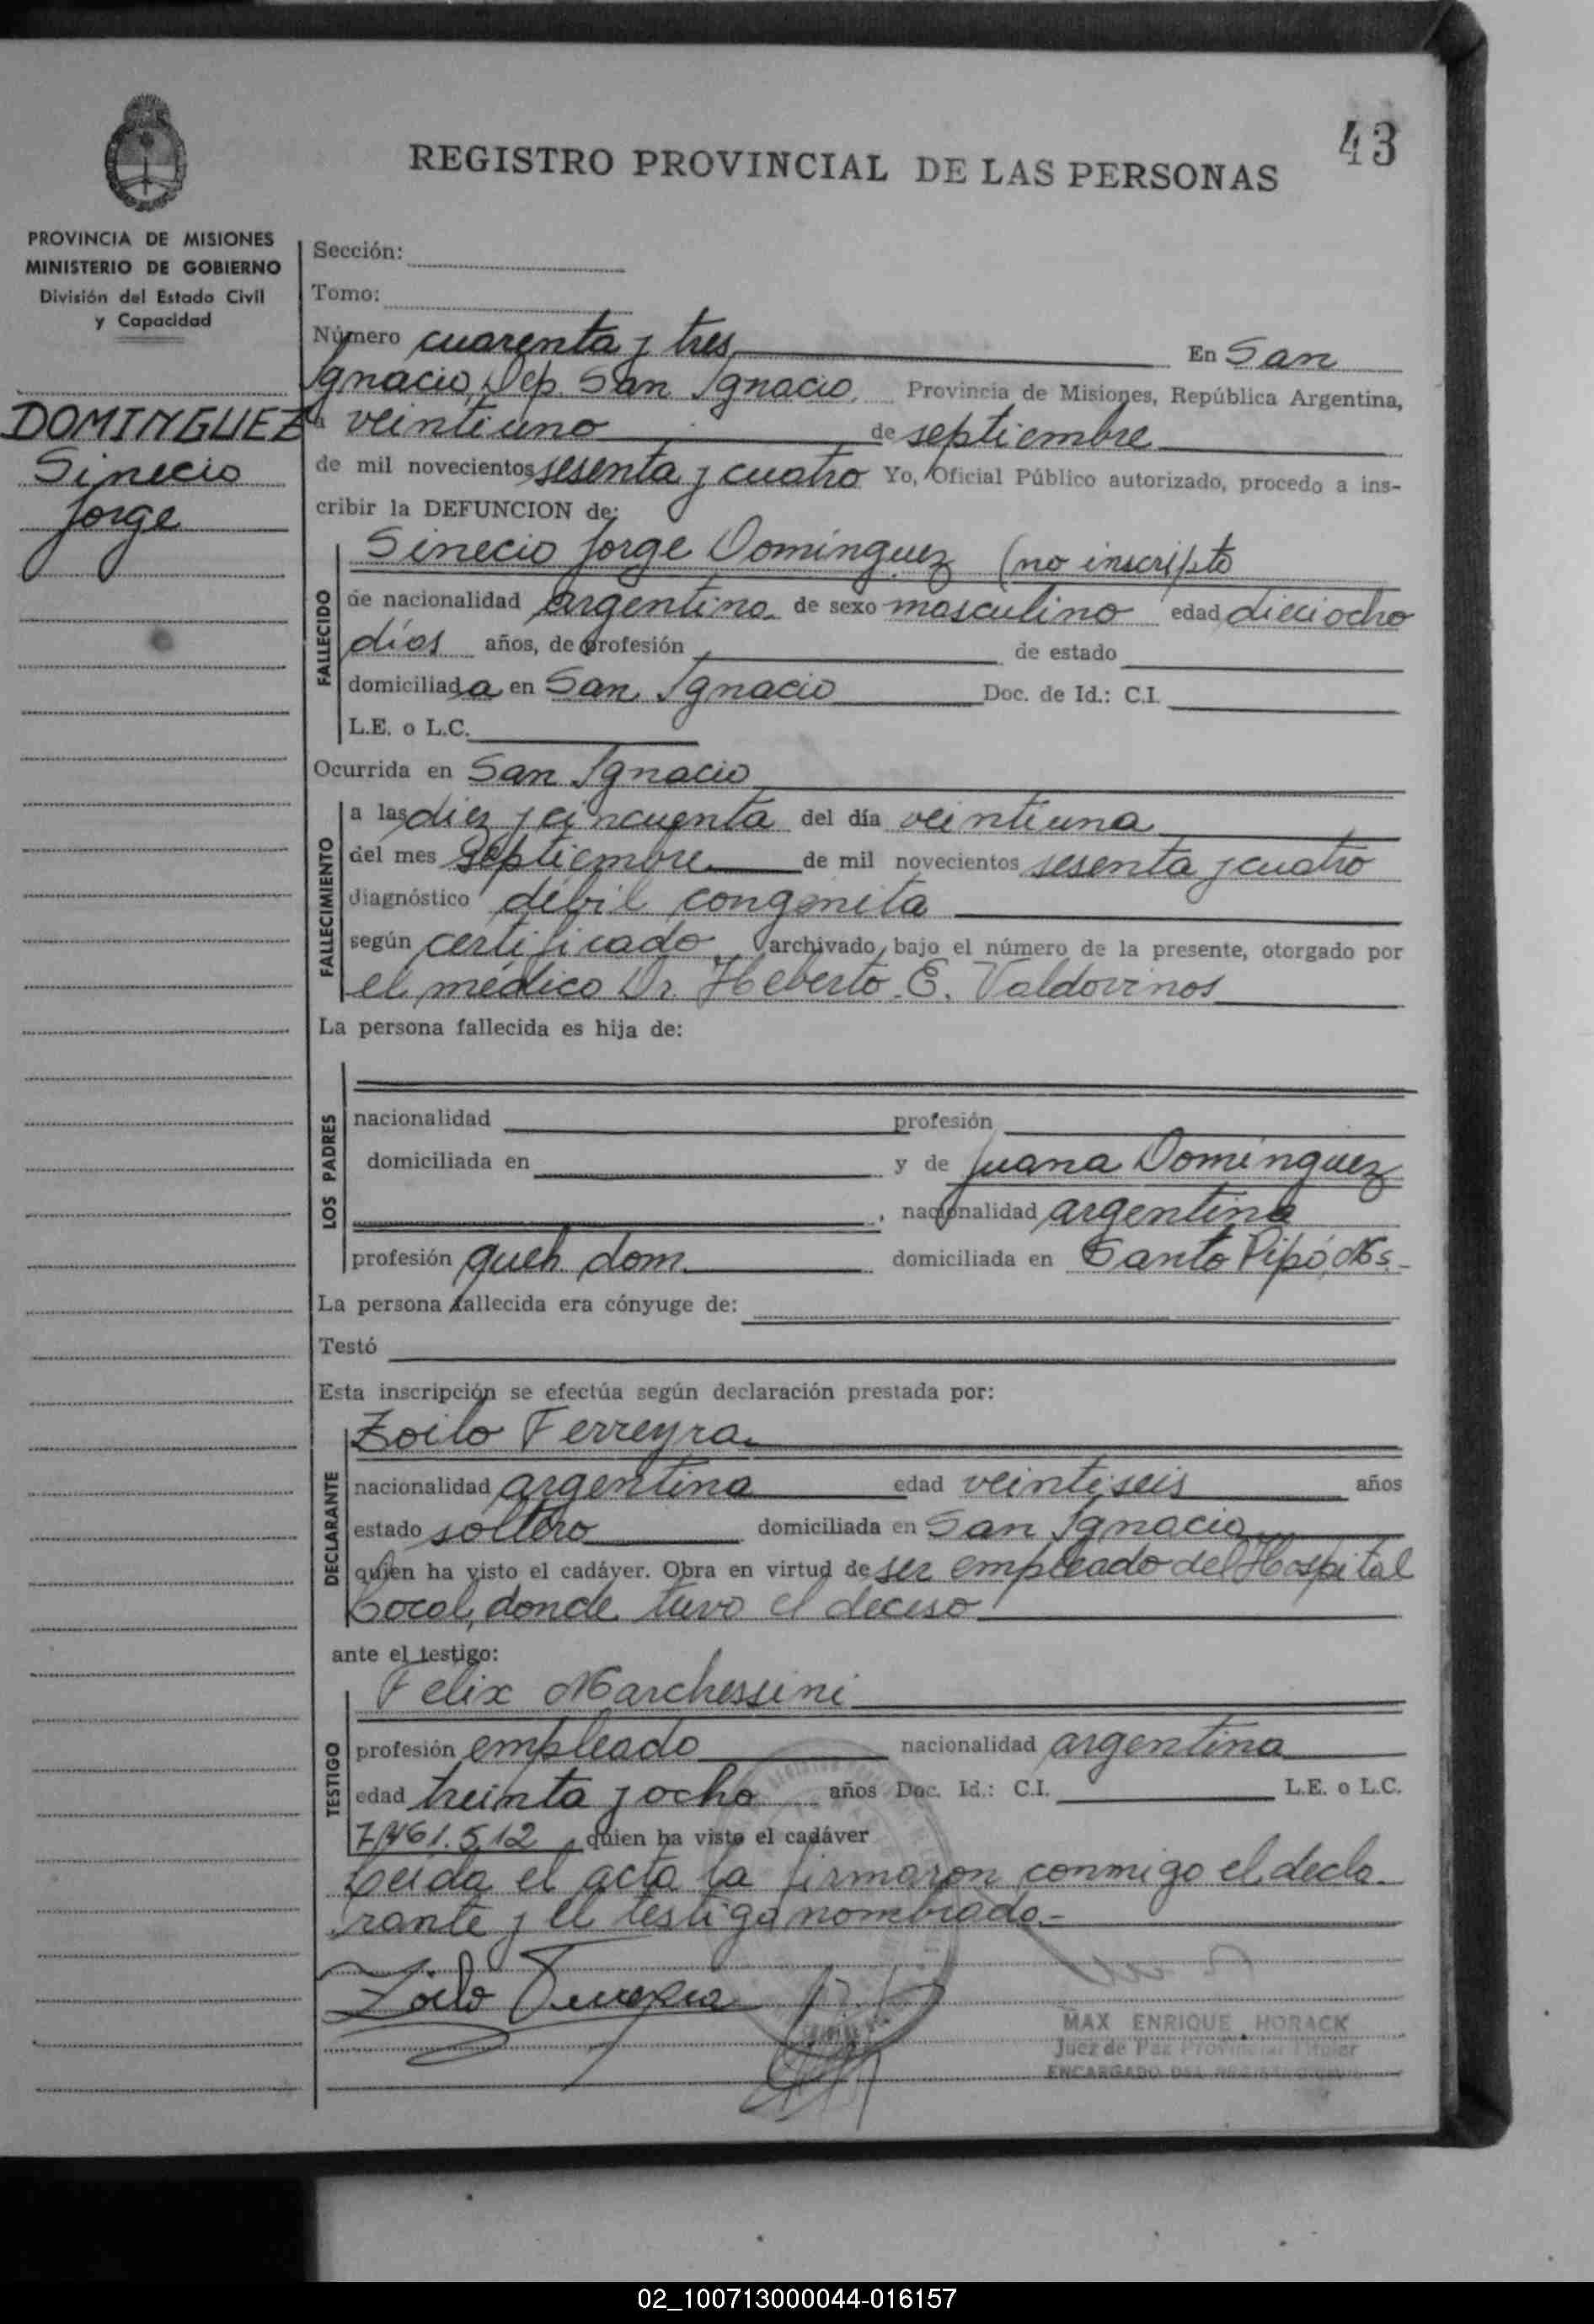 43
REGISTRO PROVINCIAL DE LAS PERSONAS
PROVINCIA DE MISIONES
MINISTERIO DE GOBIERNO
División del Estado Civil
y Capacidad
DOMINGUEZ
Sinecio
Jorge
Sección:
Tomo:
Número cuarenta y tres En San
Ignacio, Dep. San Ignacio, Provincia de Misiones, República Argentina,
a veintiuno de septiembre
de mil novecientos sesenta y cuatro Yo, Oficial Público autorizado, procedo a ins-
cribir la DEFUNCION de:
FALLECIDO
Sinecio Jorge Domínguez (no inscripto
de nacionalidad argentina de sexo masculino edad dieciocho
días años, de profesión de estado
domiciliada en San Ignacio Doc. de Id.: C.I.
L.E. o L.C.
Ocurrida en San Ignacio
FALLECIMIENTO
a las diez y cincuenta del día veintiuno
del mes septiembre de mil novecientos sesenta y cuatro
diagnóstico débil congénita
según certificado archivado bajo el número de la presente, otorgado por
el médico Dr. Heberto E. Valdovinos
La persona fallecida es hija de:
LOS PADRES
nacionalidad profesión
domiciliada en y de Juana Domínguez
, nacionalidad argentina
profesión queh. dom. domiciliada en Santo Pipó, Ms.-
La persona fallecida era cónyuge de:
Testó
Esta inscripción se efectúa según declaración prestada por:
DECLARANTE
Zoilo Ferreyra
nacionalidad argentina edad veintiseis años
estado soltero domiciliada en San Ignacio
quien ha visto el cadáver. Obra en virtud de ser empleado del Hospital
Local, donde tuvo el deceso
ante el testigo:
TESTIGO
Felix Marchessini
profesión empleado nacionalidad argentina
edad treinta y ocho años Doc. Id.: C.I. L.E. o L.C.
7.461.512, quien ha visto el cadáver
Leída el acta la firmaron conmigo el decla-
rante y el testigo nombrado.-
Zoilo Ferreyra
MAX ENRIQUE HORACK
Juez de Paz Provincial Titular
ENCARGADO DEL
02_100713000044-016157